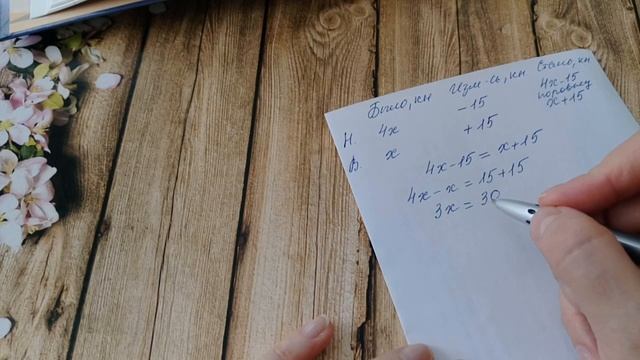 Было, кн Изм-сь, кн Стало, кн
Н. 4x -15 4x-15
поровну
В. x +15 x+15
4x-15=x+15
4x-x=15+15
3x=30